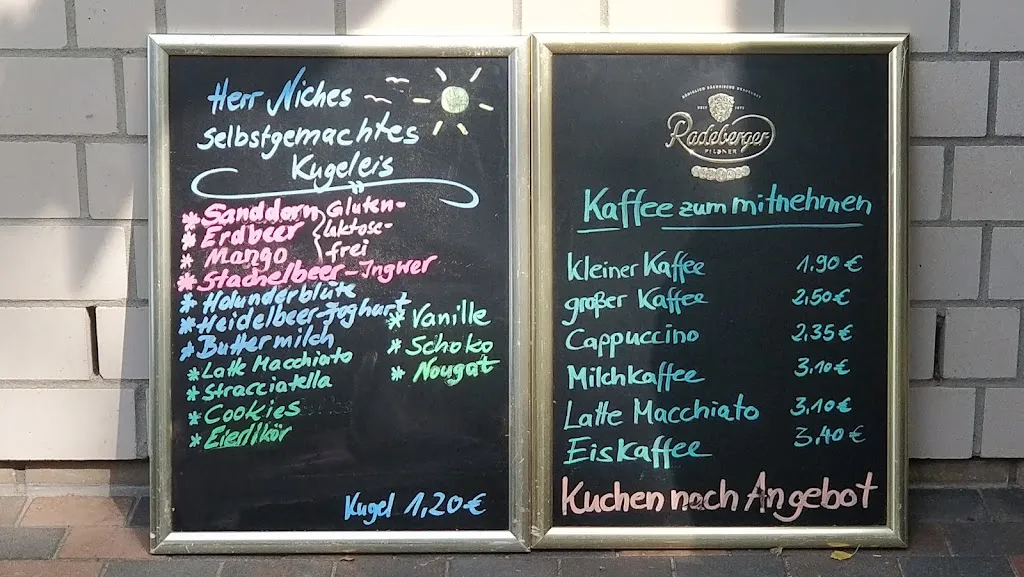 Herr Niches
selbstgemachtes
Kugeleis
* Sanddorn
* Erdbeer
* Mango
Gluten-
luktose-
frei
* Stachelbeer-Ingwer
* Holunderblüte
* Heidelbeer-Joghurt
* Buttermilch
* Latte Macchiato
* Stracciatella
* Cookies
* Eierlikör
* Vanille
* Schoko
* Nougat
Kugel 1,20 €
Radeberger
PILSNER
Kaffee zum mitnehmen
kleiner Kaffee 1.90 €
großer Kaffee 2,50 €
Cappuccino 2,35 €
Milchkaffee 3,10 €
Latte Macchiato 3,10 €
Eiskaffee 3,40 €
Kuchen nach Angebot